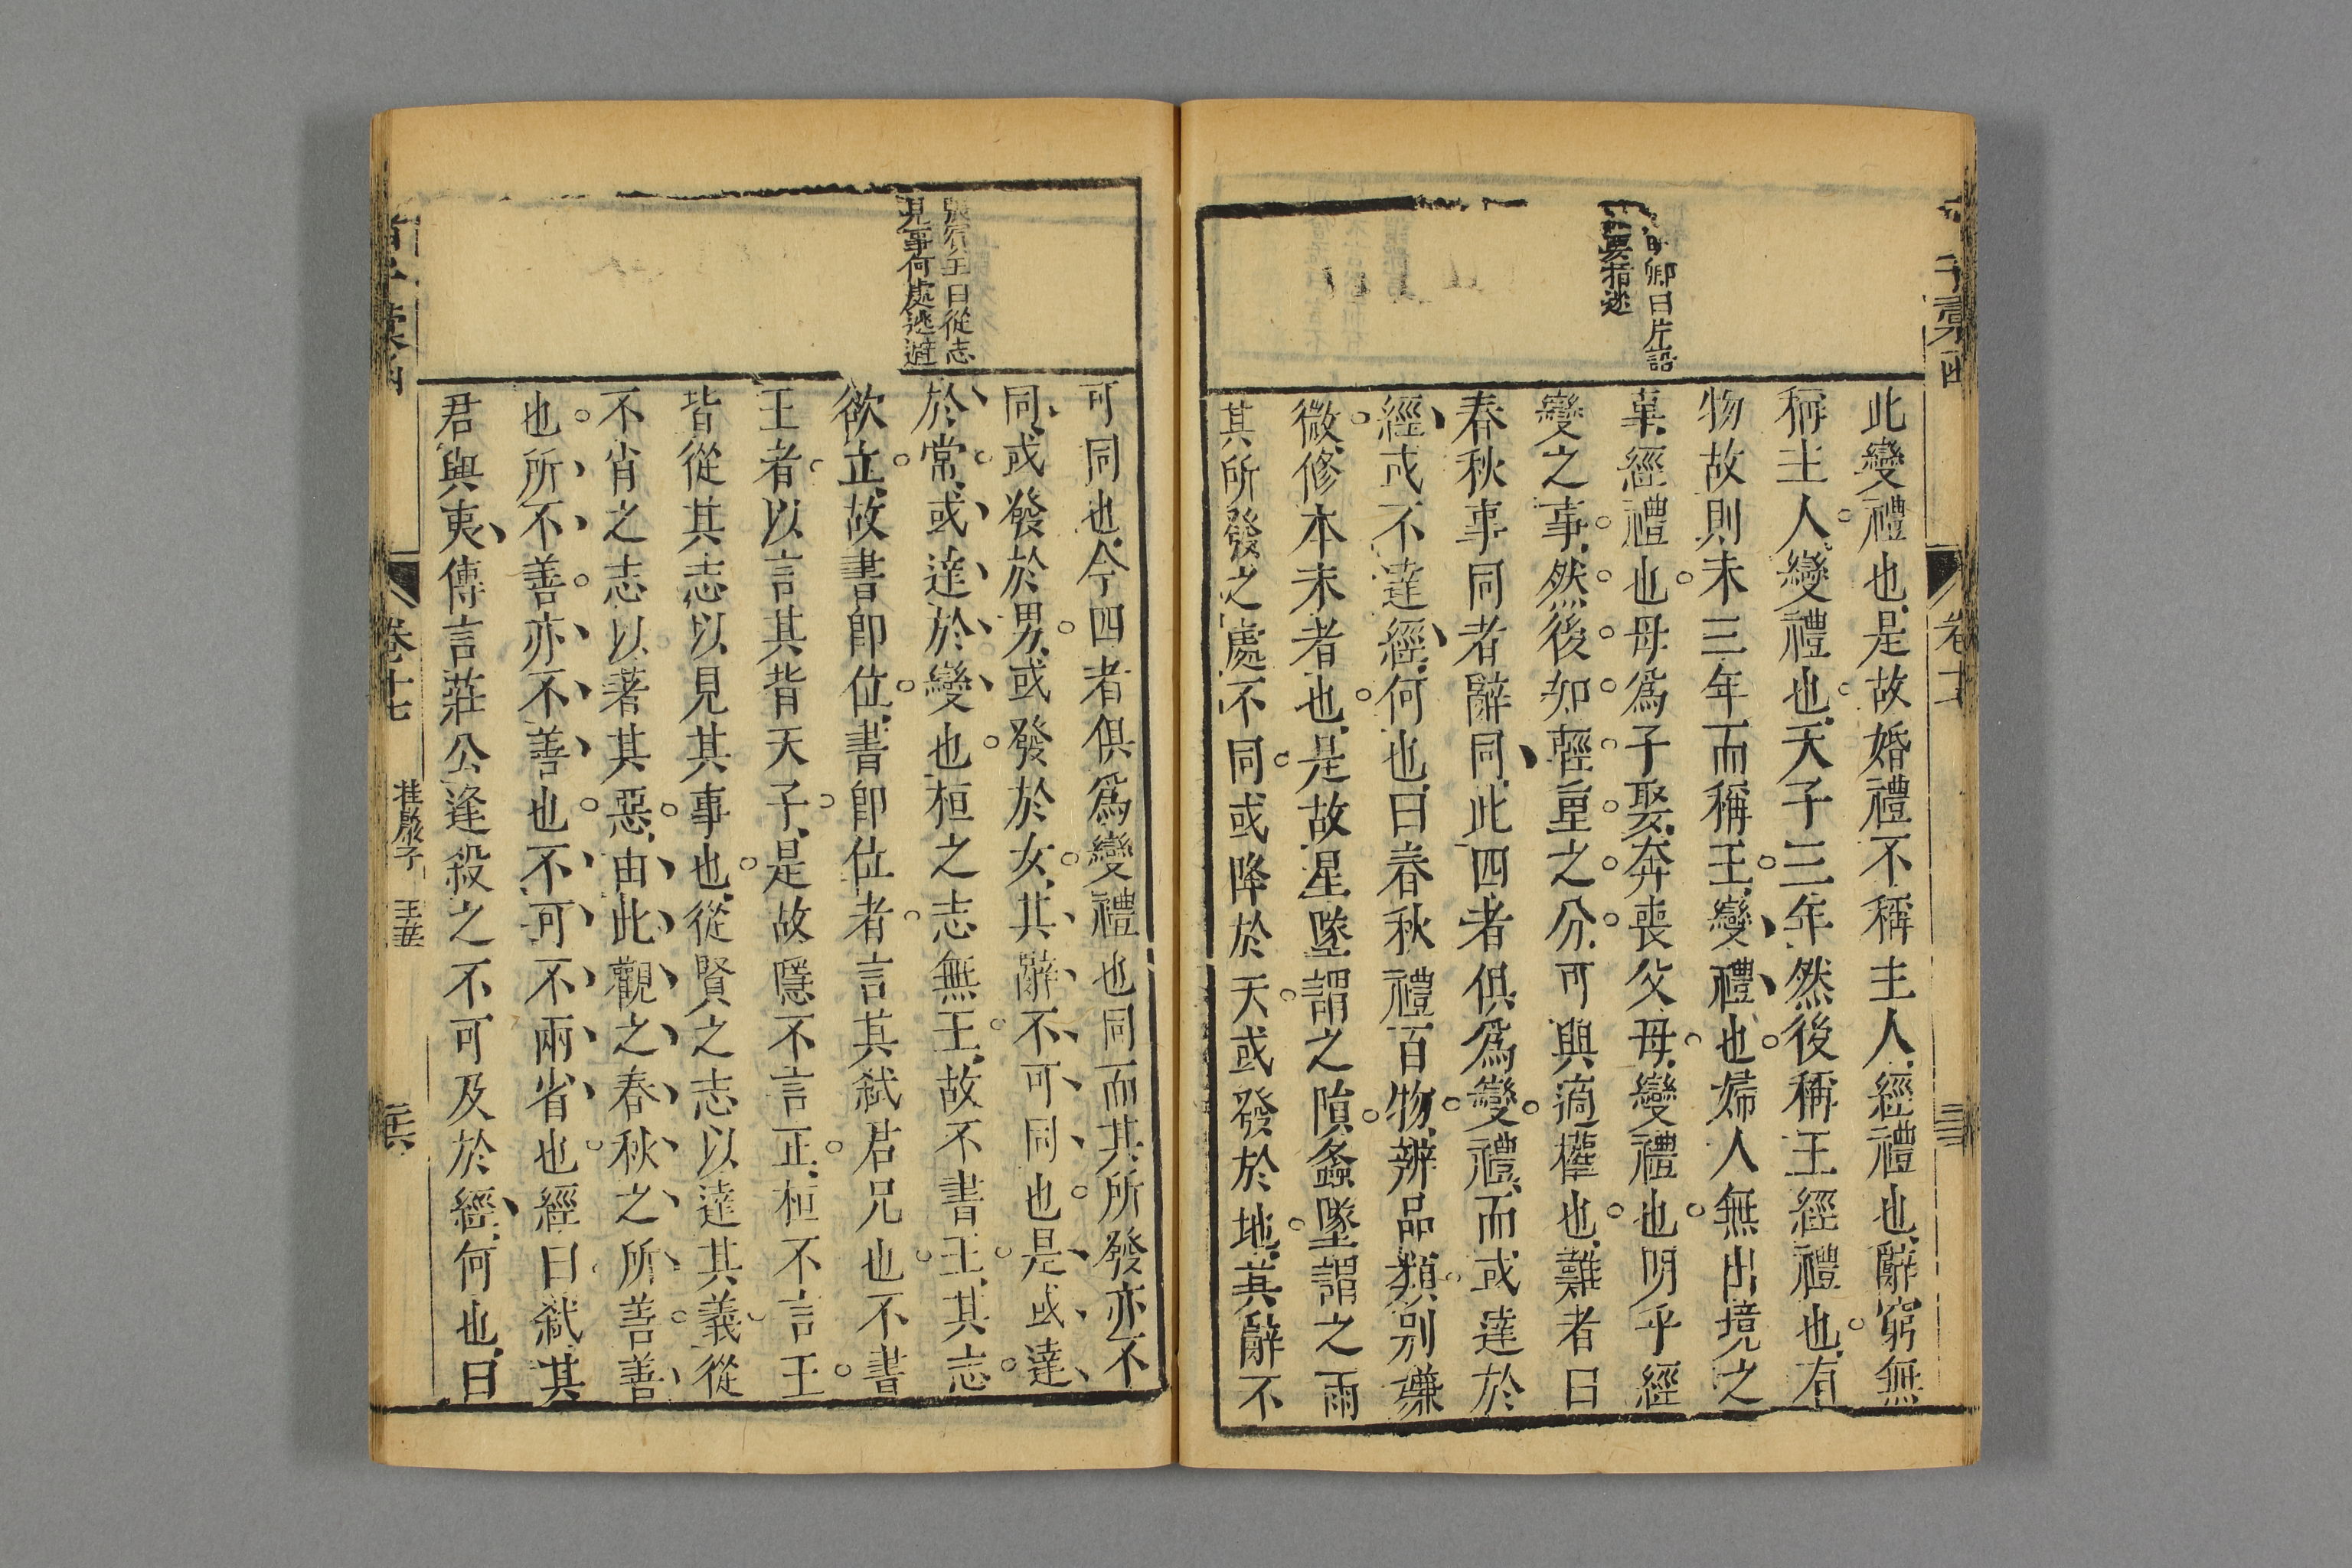 卿曰片語
要指迷
此變禮也是故婚禮不稱主人經禮也辭窮無
稱主人變禮也天子三年然後稱王經禮也有
物故則未三年而稱王變禮也婦人無出境之
事經禮也母爲子娶奔喪父母變禮也明乎經
變之事然後知輕重之分可與適權也難者曰
春秋事同者辭同此四者俱爲變禮而或達於
經或不達經何也曰春秋禮百物辨品類別嫌
微修本末者也是故星墜謂之隕螽墜謂之雨
其所發之處不同或降於天或發於地其辭不
卷十七
王曰從志
見事何處逃避
可同也今四者俱爲變禮也同而其所發亦不
同或發於男或發於女其辭不可同也是或達
於常或達於變也桓之志無王故不書王其志
欲立故書卽位書卽位者言其弒君兄也不書
王者以言其背天子是故隱不言正桓不言王
皆從其志以見其事也從賢之志以達其義從
不肖之志以著其惡由此觀之春秋之所善善
也所不善亦不善也不可不兩省也經曰弒其
君與夷傳言莊公逢殺之不可及於經何也曰
卷十七
桂巖子
玉英